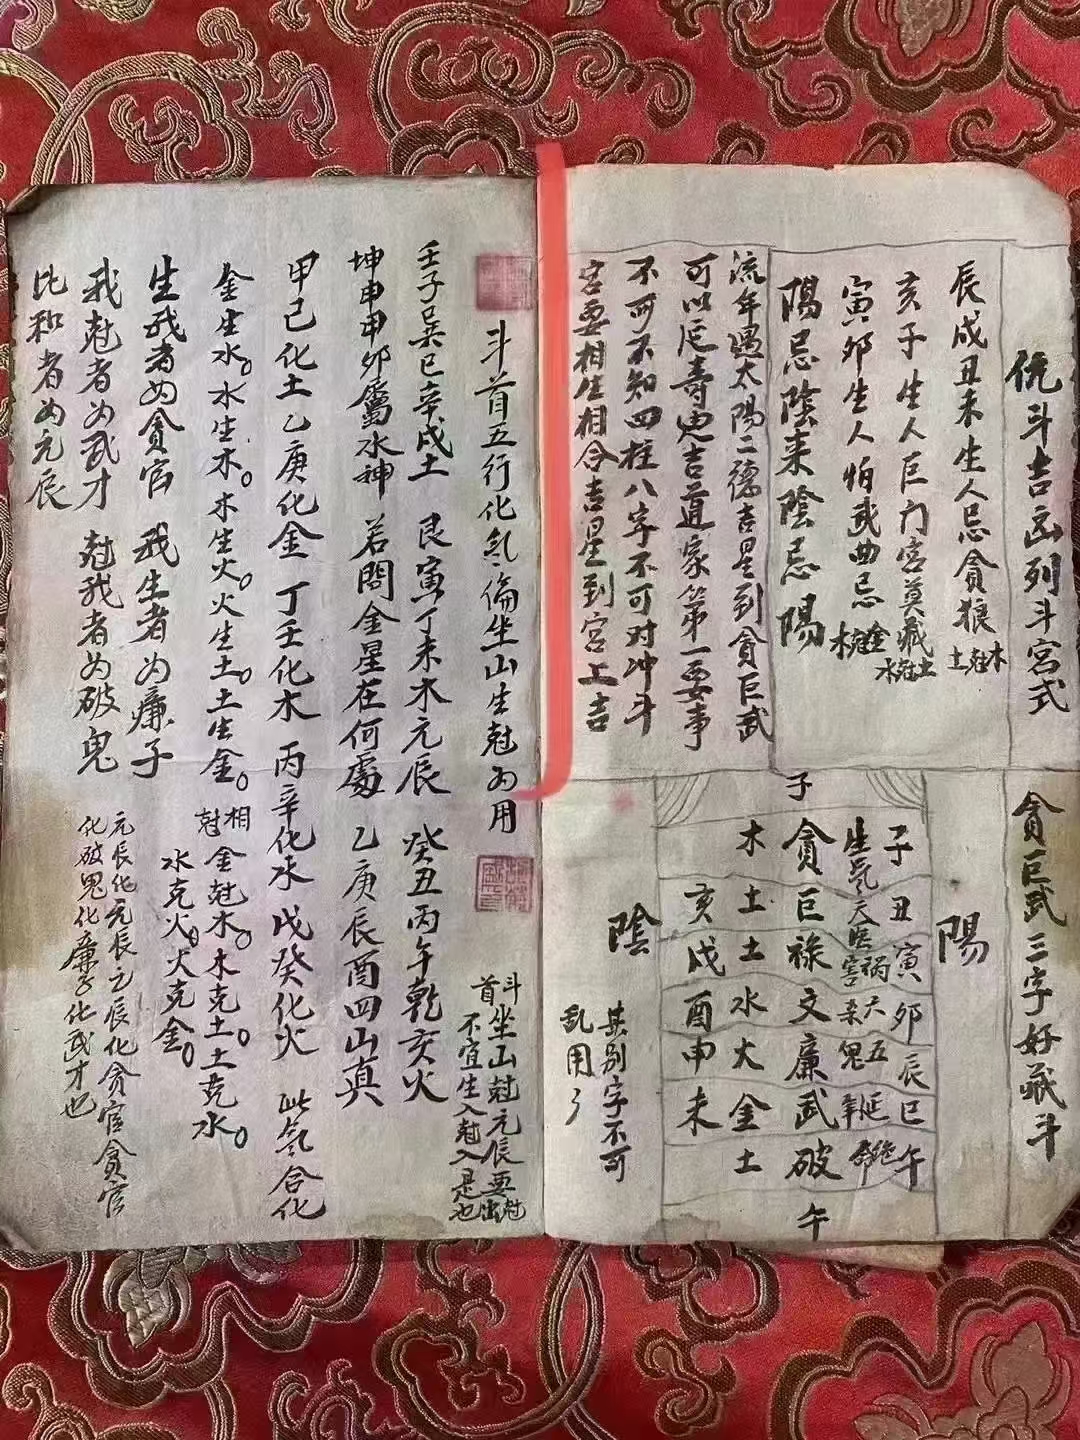 斗吉凶列斗宮式
辰戌丑未生人忌貪狼木尅土
亥子生人巨门宮莫藏土尅水
寅卯生人怕武曲忌金尅木
陽忌陰来陰忌陽
流年遇太陽二德吉星到貪巨武
可以延寿也吉道家第一要事
不可不知四柱八字不可对冲斗
宮要相生相合吉星到宮上吉
貪巨武三字好藏斗
陽
子
子丑寅卯辰巳午
生氣天醫祸害六杀五鬼延年絶命
貪巨祿文廉武破
木土土水火金土
亥戌酉申未
午
陰
其别字不可
乱用了
斗首五行化氣倫坐山生尅为用
壬子巽巳辛戌土 艮寅丁未木元辰 癸丑丙午乾亥火
斗首坐山尅元辰要尅出
不宜生入尅入是也
坤申甲卯屬水神 若問金星在何處 乙庚辰酉四山真
甲己化土乙庚化金 丁壬化木 丙辛化水 戊癸化火 此氣合化
金生水。水生木。木生火。火生土。土生金。
相尅 金尅木。木克土。土克水。
水克火。火克金。
生我者为貪官 我生者为廉子
我尅者为武才 尅我者为破鬼
比和者为元辰
元辰化元辰元辰化貪官貪官
化破鬼化廉子化武才也